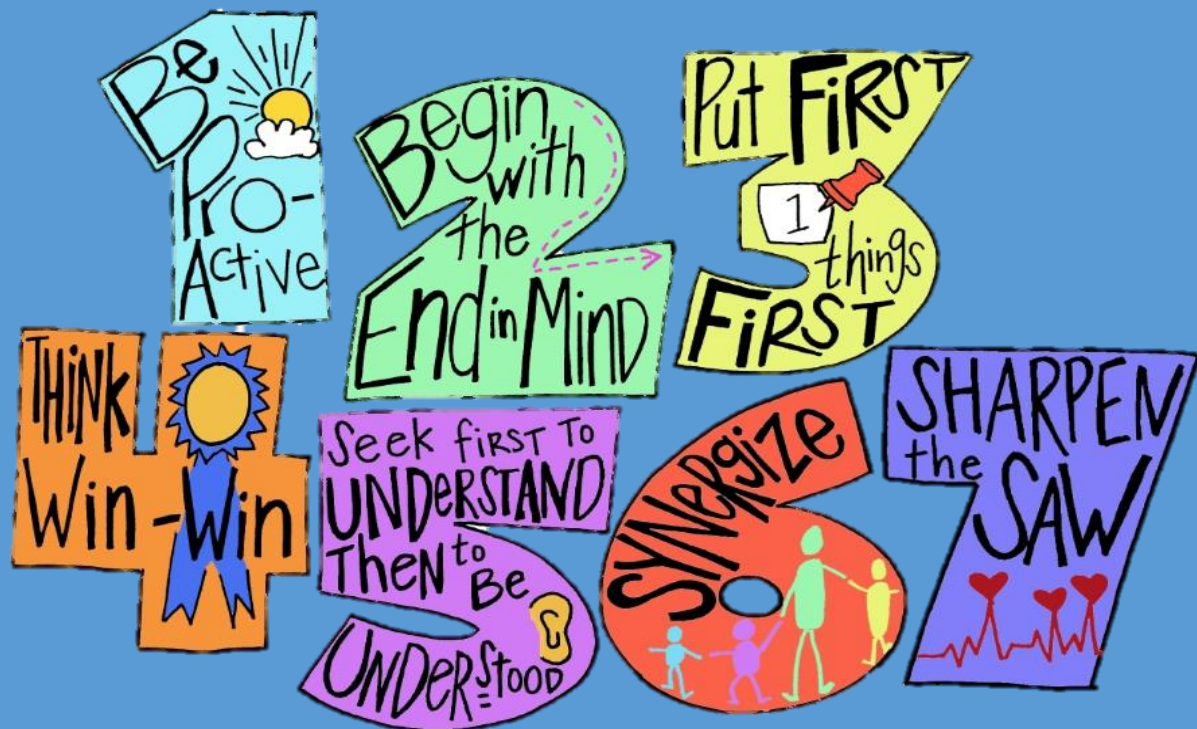 Be
Pro-
Active
Begin
with
the
End in Mind
Put FIRST
1
things
FIRST
THiNK
Win-Win
Seek fiRST To
UNDeRSTAND
THeN to
Be
UNDeRSTOOD
SYNeRgiZe
SHARPEN
the
SAW